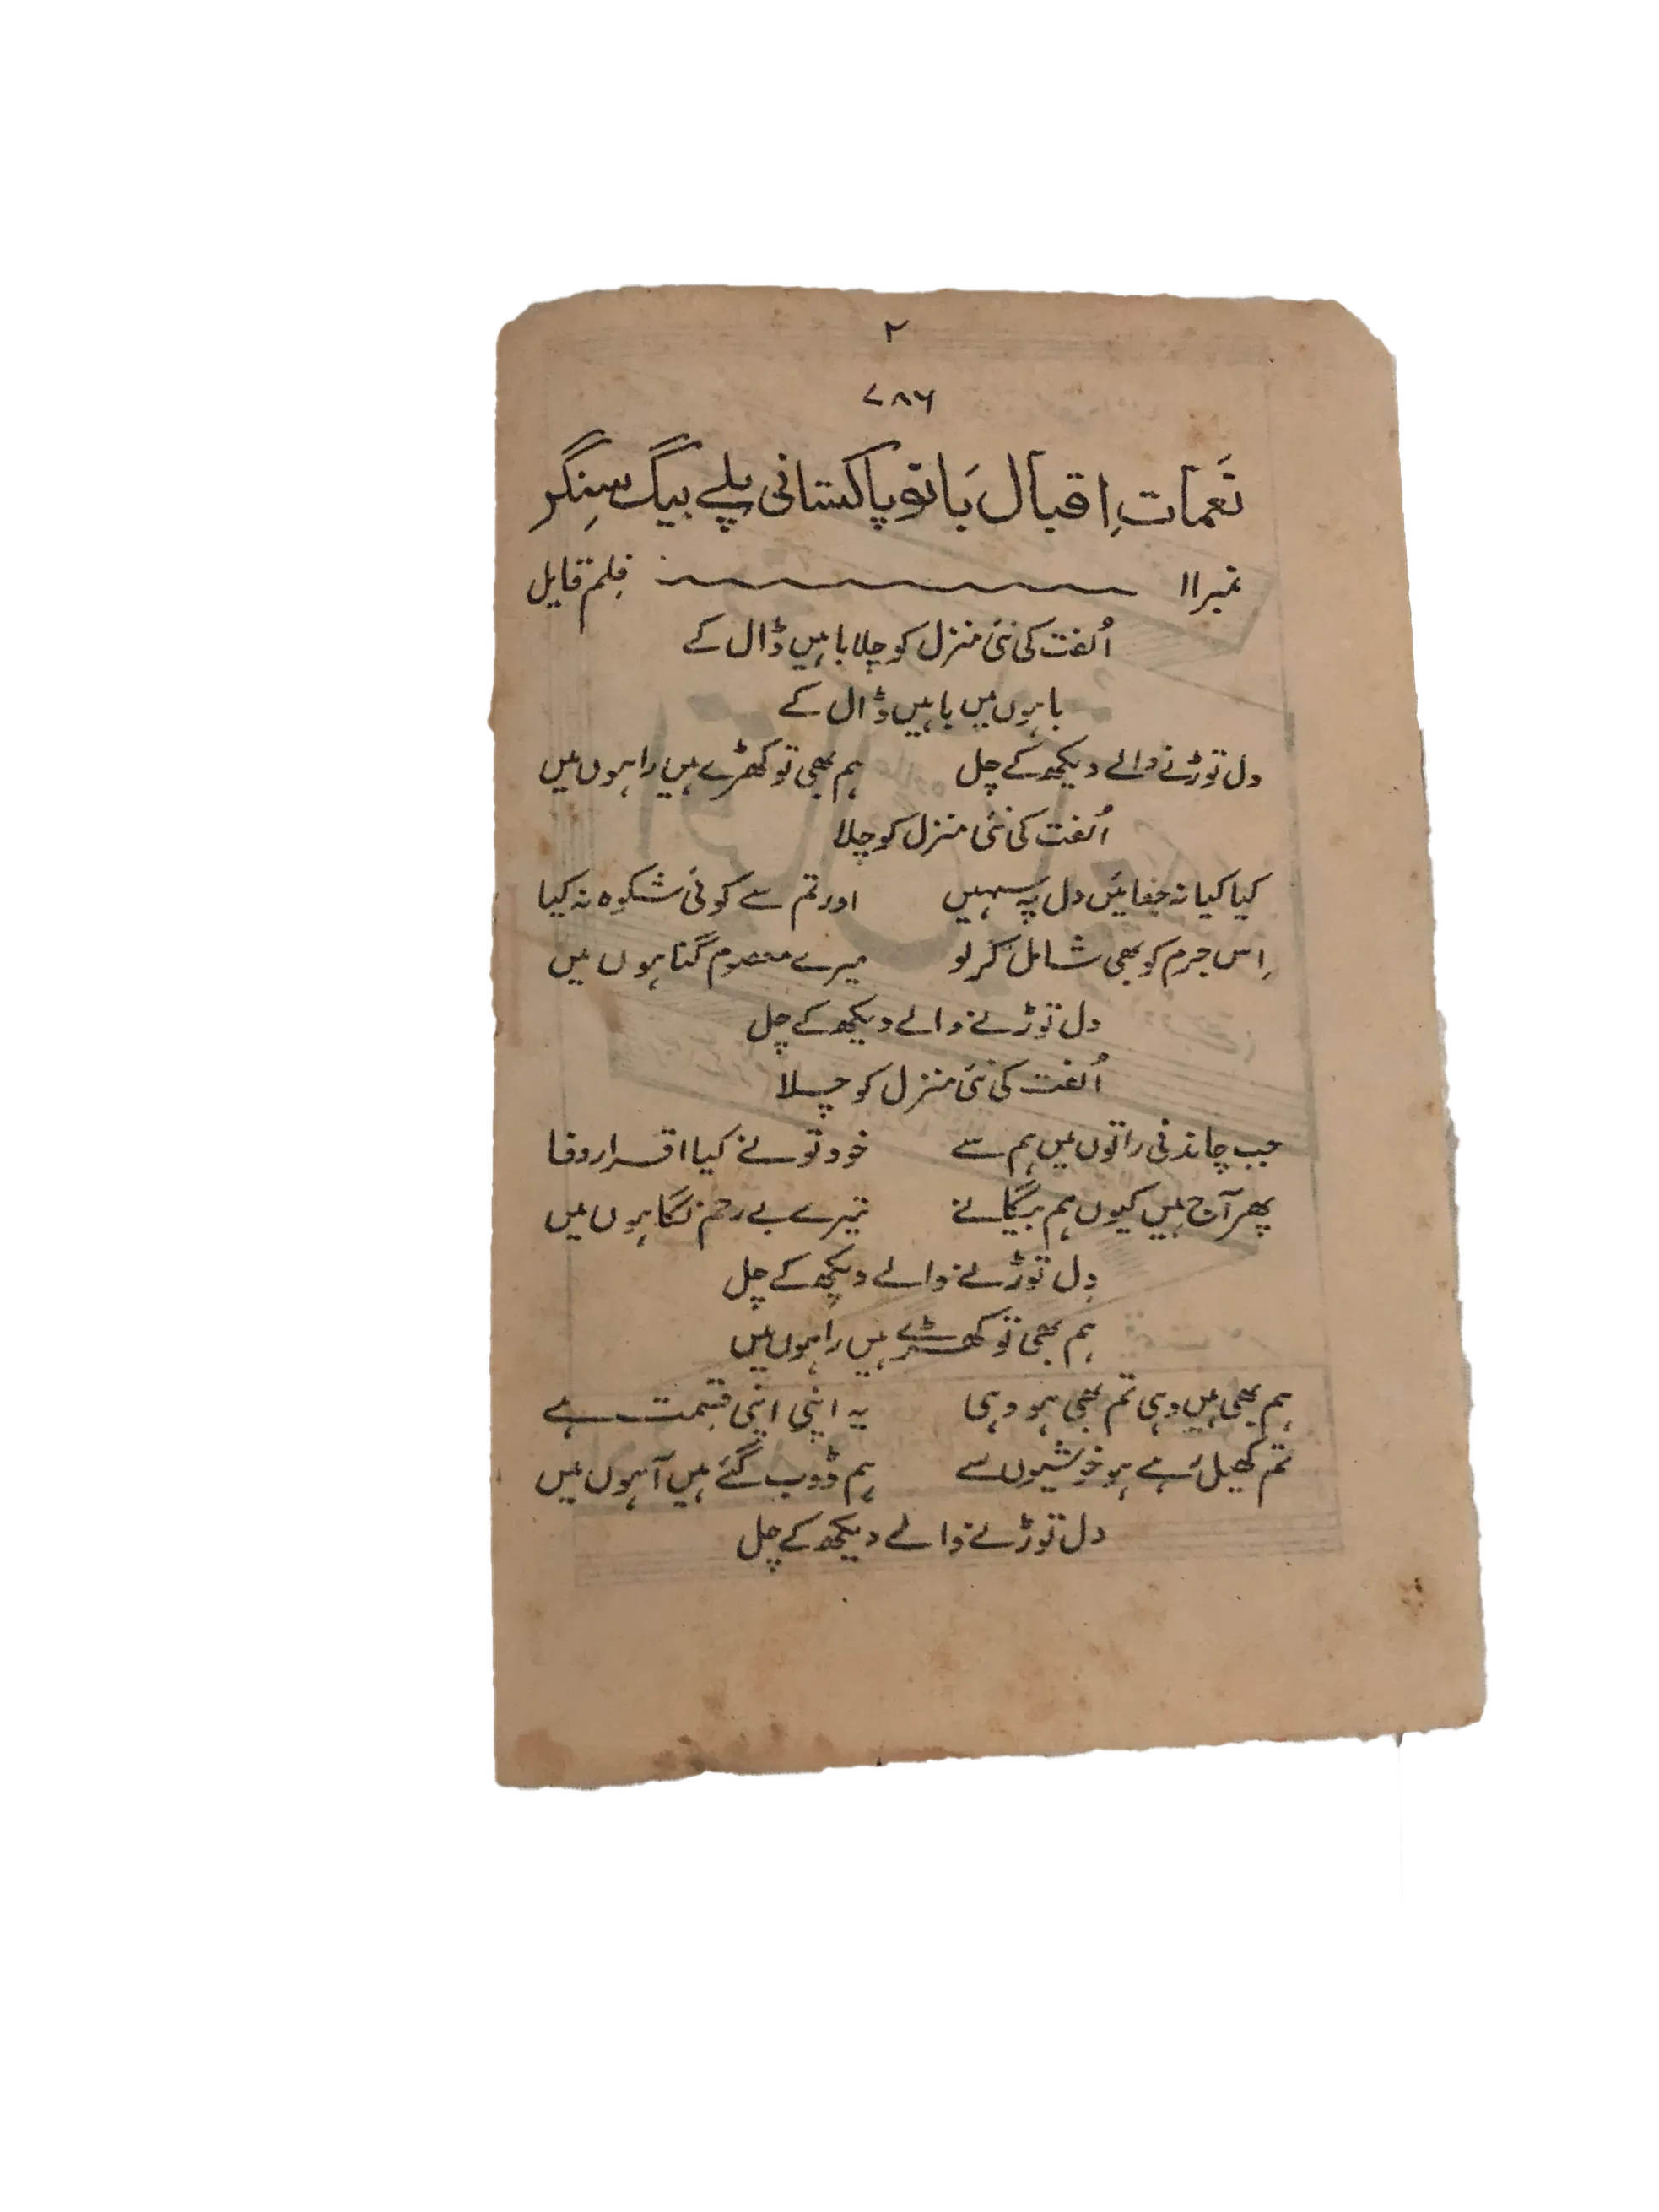 ۲
۷۸۶
نغمات اِقبال بَانو پاکستانی پلے بیگ سِنگر
نمبر ۱۱ فِلم قایل
اُلفت کی نئی منزل کو چلا باہیں ڈال کے
باہوں میں باہیں ڈال کے
دل توڑنے والے دیکھ کے چل ہم بھی تو کھڑے ہیں راہوں میں
اُلفت کی نئی منزل کو چلا
کیا کیا نہ جفائیں دل پہ سہیں اور تم سے کوئی شکوہ نہ کیا
اِس جرم کو بھی شامل کر لو میرے معصوم گناہوں میں
دل توڑنے والے دیکھ کے چل
اُلفت کی نئی منزل کو چلا
جب چاندنی راتوں میں ہم سے خود تو نے کیا اقرار وفا
پھر آج ہیں کیوں ہم بیگانے تیرے بے رحم نگاہوں میں
دِل توڑنے والے دیکھ کے چل
ہم بھی تو کھڑے ہیں راہوں میں
ہم بھی ہیں وہی تم بھی ہو وہی یہ اپنی اپنی قسمت ہے
تم کھیل رہے ہو خوشیوں سے ہم ڈوب گئے ہیں آہوں میں
دل توڑنے والے دیکھ کے چل